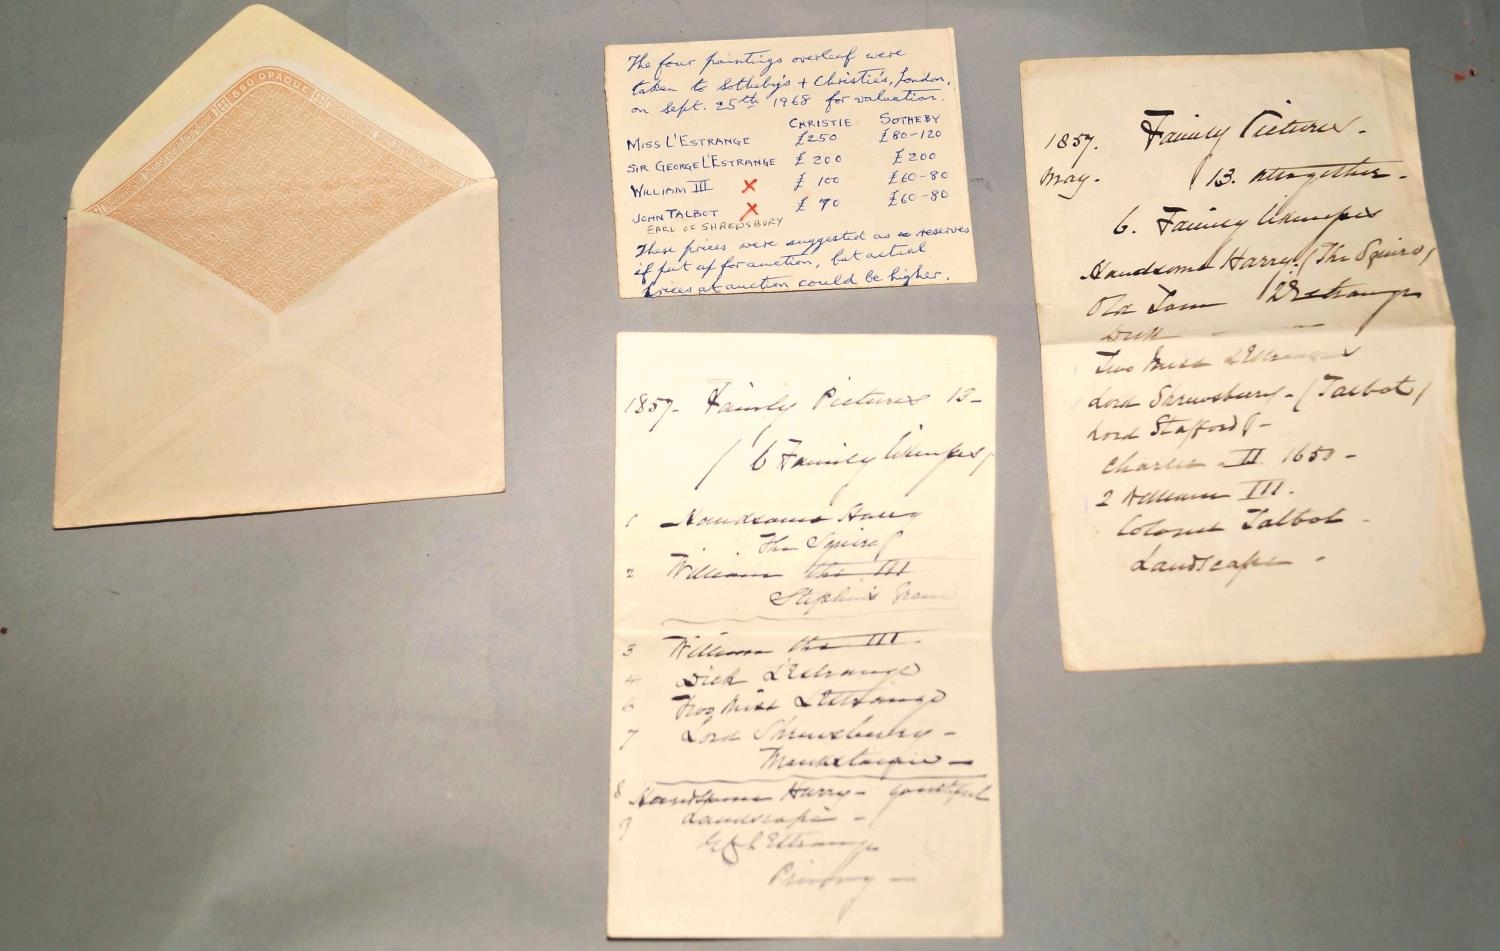 850 OPAQUE
The four paintings overleaf were
taken to Sotheby's + Christie's, London,
on Sept. 25th 1968 for valuation.
CHRISTIE SOTHEBY
MISS L'ESTRANGE £250 £80-120
SIR GEORGE L'ESTRANGE £200 £200
WILLIAM III X £100 £60-80
JOHN TALBOT X £70 £60-80
EARL OF SHREWSBURY
These prices were suggested as reserves
if put up for auction, but actual
prices at auction could be higher.
1857- Family Pictures 13-
(6 Family likenesses)
1 Handsome Harry
The Squire
2 William the III
Stephen's Green
3 William the III.
4 Dick L'Estrange
6 Two Miss L'Estrange
7 Lord Shrewsbury -
Monkstown -
8 Handsome Harry - youthful
9 Landscape -
G L'Estrange
Priory -
1857. Family Pictures -
May. 13. altogether -
6. Family likenesses
Handsome Harry. (The Squire)
Old Tom L'Estrange
Dick - -
Two Miss L'Estranges
Lord Shrewsbury - (Talbot)
Lord Stafford -
Charles II. 1650 -
2 William III.
Colonel Talbot -
Landscape -